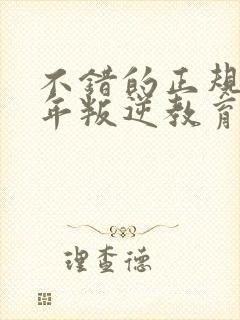 不错的正规
年叛逆教育
理查德